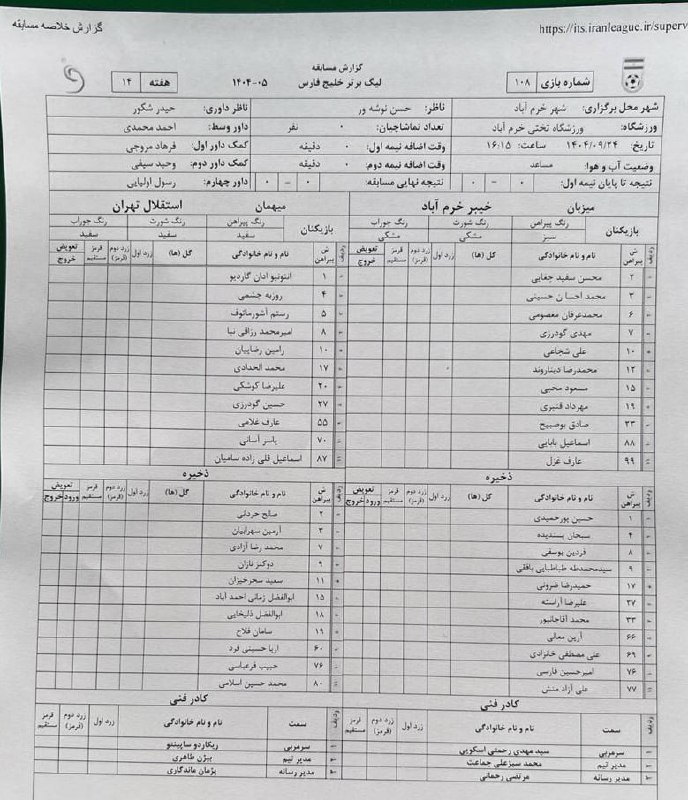 گزارش خلاصه مسابقه
https://its.iranleague.ir/superv
گزارش مسابقه
لیگ برتر خلیج فارس ۰۵-۱۴۰۴
شماره بازی ۱۰۸
هفته ۱۴
شهر محل برگزاری: شهر خرم آباد
ناظر: حسن نوشه ور
ناظر داوری: حیدر شکور
ورزشگاه: ورزشگاه تختی خرم آباد
تعداد تماشاچیان: ۰ نفر
داور وسط: احمد محمدی
تاریخ: ۱۴۰۴/۰۹/۲۴ ساعت: ۱۶:۱۵
وقت اضافه نیمه اول: ۰ دقیقه
کمک داور اول: فرهاد مروجی
وضعیت آب و هوا: مساعد
وقت اضافه نیمه دوم: ۰ دقیقه
کمک داور دوم: وحید سیفی
نتیجه تا پایان نیمه اول: ۰ - ۰
نتیجه نهایی مسابقه: ۰ - ۰
داور چهارم: رسول اولیایی
میزبان خیبر خرم آباد
بازیکنان
رنگ پیراهن رنگ شورت رنگ جوراب
سبز مشکی مشکی
ردیف ش پیراهن نام و نام خانوادگی گل (ها) زرد اول زرد دوم (قرمز) قرمز مستقیم تعویض خروج
۲ محسن سفید چغایی
۳ محمد احسان حسینی
۶ محمدعرفان معصومی
۷ مهدی گودرزی
۱۰ علی شجاعی
۱۲ محمدرضا دیناروند
۱۵ مسعود محبی
۱۹ مهرداد قنبری
۲۳ صادق بوصبیح
۸۸ اسماعیل بابایی
۹۹ عارف غزل
ذخیره
ردیف ش پیراهن نام و نام خانوادگی گل (ها) زرد اول زرد دوم (قرمز) قرمز مستقیم تعویض ورود خروج
۱ حسین پورحمیدی
۴ سبحان پسندیده
۸ فردین یوسفی
۹ سیدمحمدطه طباطبایی بافقی
۱۷ حمیدرضا ضرونی
۲۷ علیرضا آراسته
۳۳ محمد آقاجانپور
۶۶ آرین
۶۹ علی مصطفی خانزادی
۷۶ امیرحسین فارسی
۷۷ علی آزاد منش
کادر فنی
ردیف سمت نام و نام خانوادگی زرد اول زرد دوم (قرمز) قرمز مستقیم
۱ سرمربی سید مهدی رحمتی اسکویی
۲ مدیر تیم محمد سبزعلی جماعت
۳ مدیر رسانه مرتضی رحمانی
میهمان استقلال تهران
بازیکنان
رنگ پیراهن رنگ شورت رنگ جوراب
سفید سفید سفید
ردیف ش پیراهن نام و نام خانوادگی گل (ها) زرد اول زرد دوم (قرمز) قرمز مستقیم تعویض خروج
۱ انتونیو ادان گاردیو
۴ روزبه چشمی
۵ رستم آشورماتوف
۸ امیرمحمد رزاقی نیا
۱۰ رامین رضاییان
۱۷ محمد الحدادی
۲۰ علیرضا کوشکی
۲۷ حسین گودرزی
۵۵ عارف غلامی
۷۰ یاسر آسانی
۸۷ اسماعیل قلی زاده سامیان
ذخیره
ردیف ش پیراهن نام و نام خانوادگی گل (ها) زرد اول زرد دوم (قرمز) قرمز مستقیم تعویض ورود خروج
۲ صالح حردانی
۳ آرمین سهرابیان
۷ محمد رضا آزادی
۹ دوکنز نازان
۱۱ سعید سحرخیزان
۱۵ ابوالفضل زمانی احمد آباد
۱۸ ابوالفضل
۱۹ سامان فلاح
۶۰ آریا حسینی فرد
۷۶ حبیب فرعباسی
۸۰ محمد حسین اسلامی
کادر فنی
ردیف سمت نام و نام خانوادگی زرد اول زرد دوم (قرمز) قرمز مستقیم
۱ سرمربی ریکاردو ساپینتو
۲ مدیر تیم بیژن طاهری
۳ مدیر رسانه پژمان ماندگاری